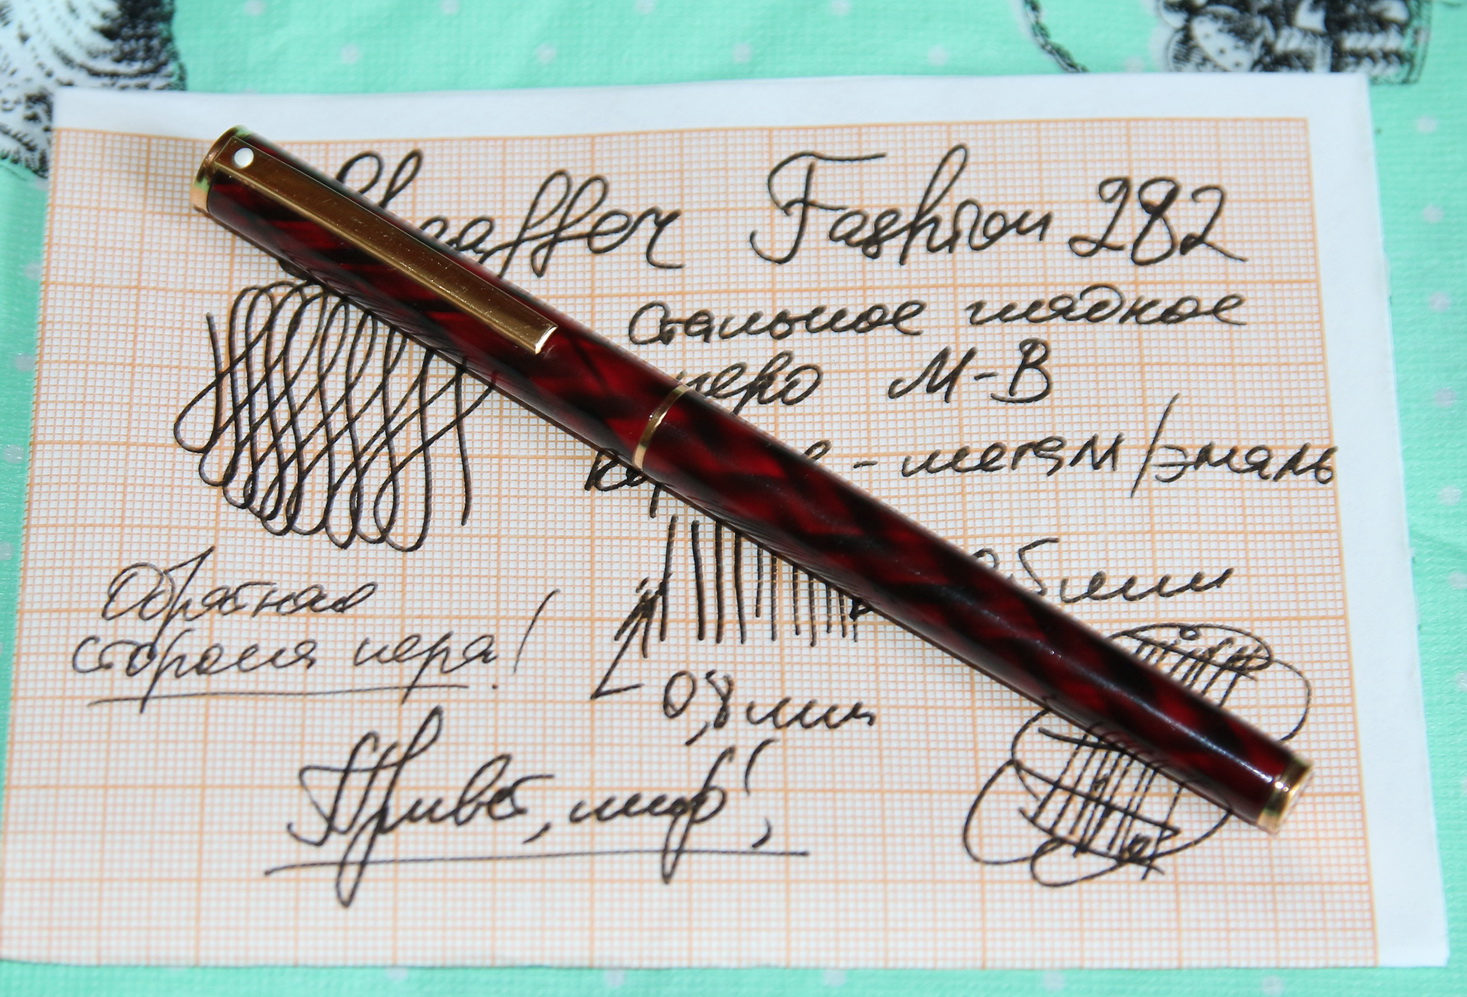 Sheaffer Fashion 282
стальное гладкое
перо M-B
- металл/эмаль
0,5 мм
Обратная
сторона пера!
0,8 мм
Привет, мир!